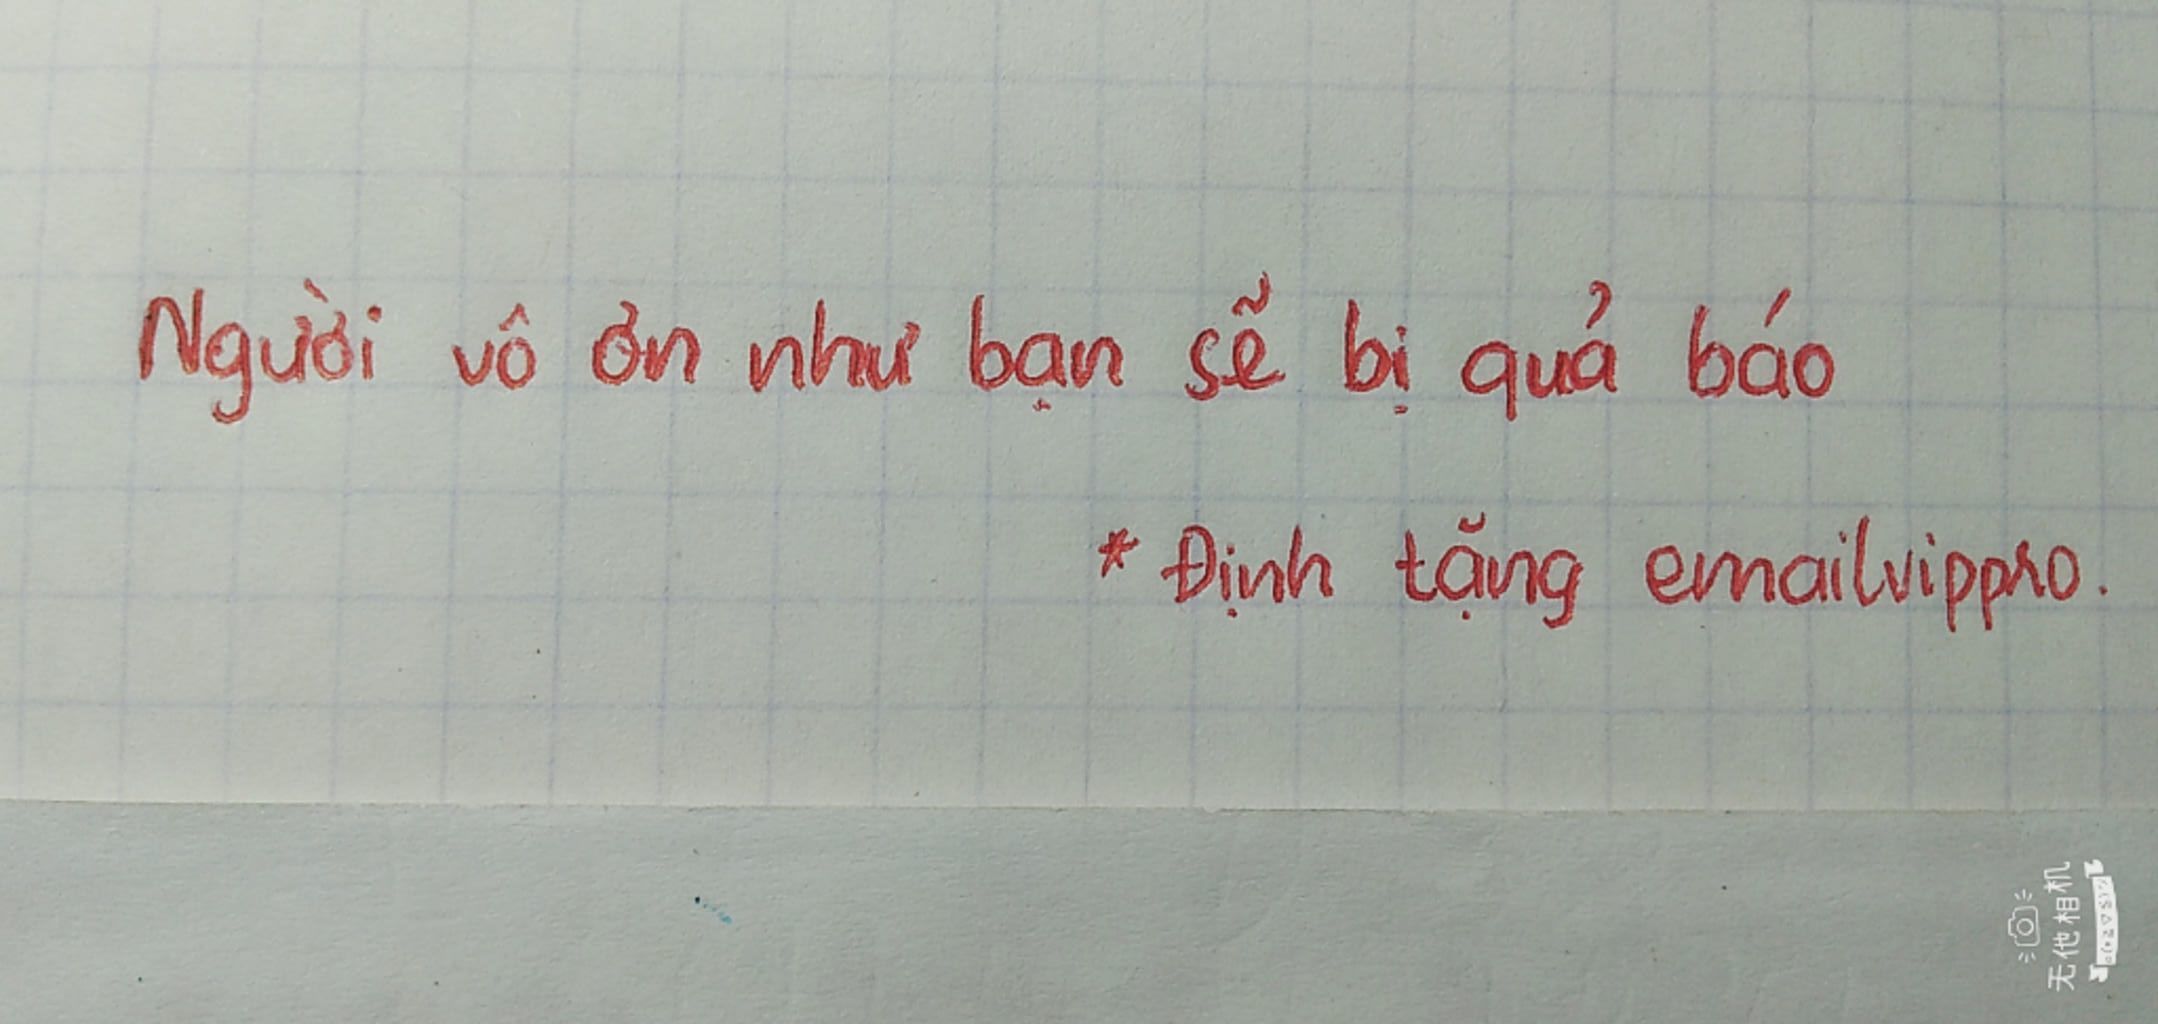 Người vô ơn như bạn sẽ bị quả báo
* Định tặng emailvippro.
无他相机